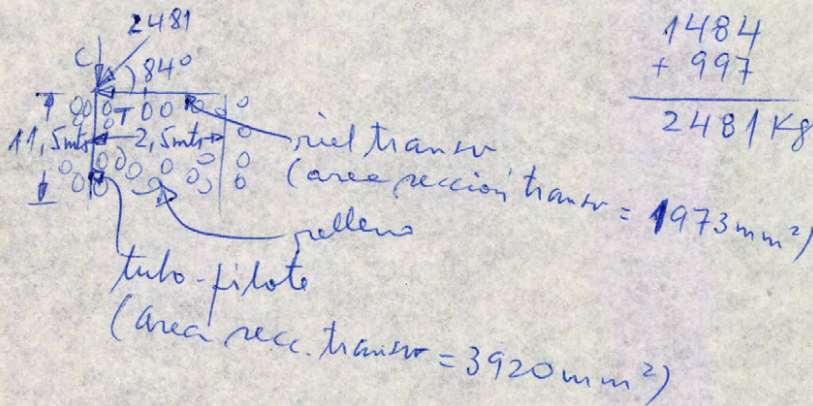 2481
C
84°
T
11,5mts
2,5mts
riel transv
(area sección transv = 1973mm²)
relleno
tubo-pilote
(area secc. transv = 3920mm²)
1484
+ 997
2481 Kg